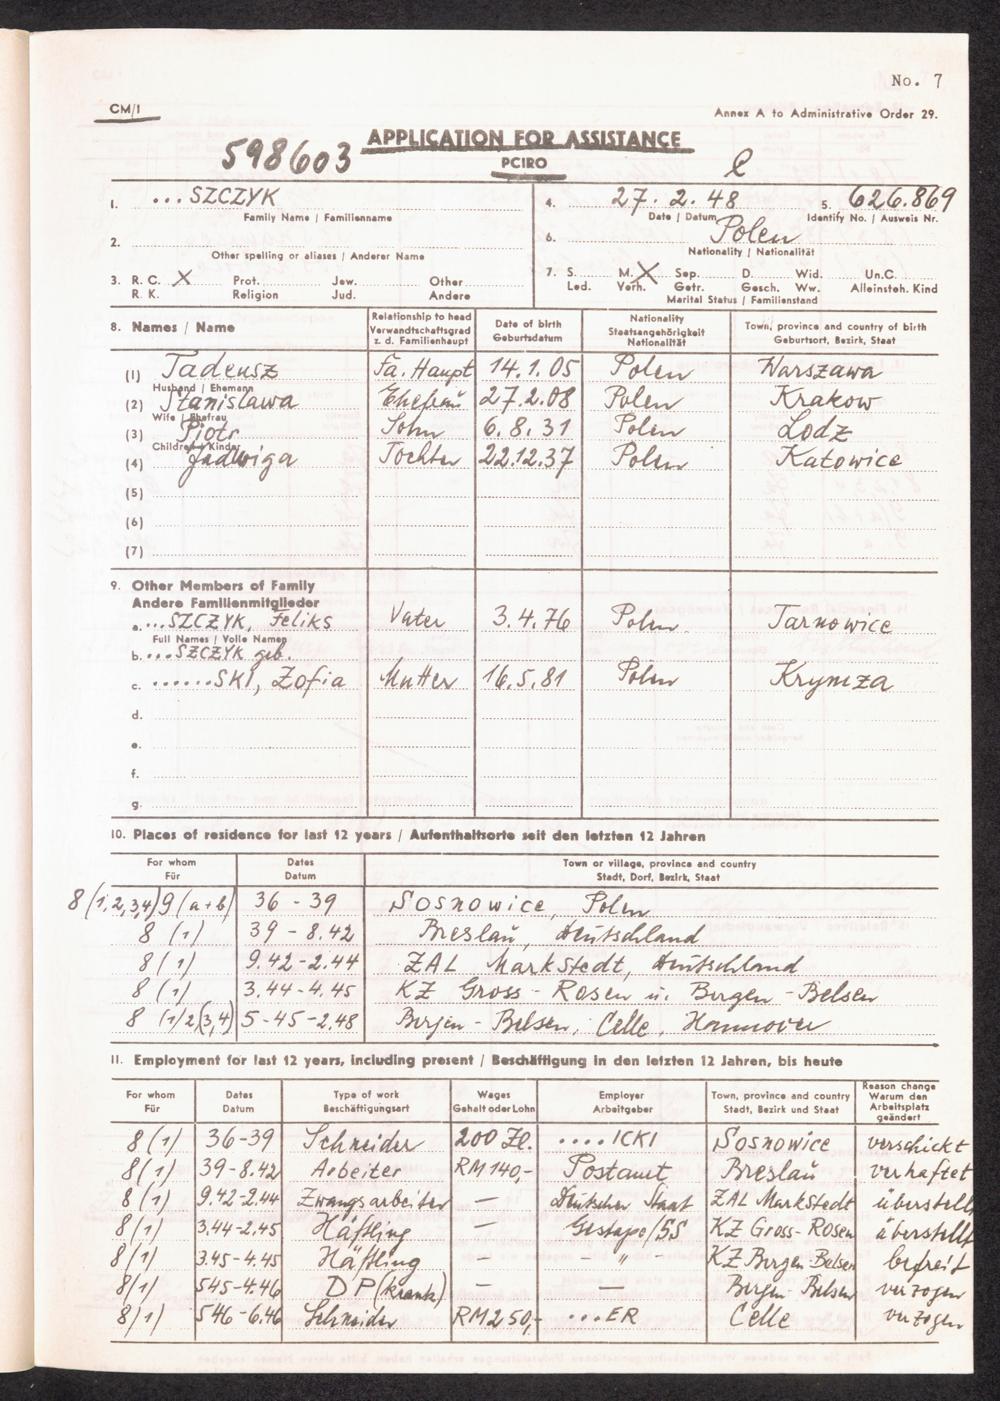 No. 7
CM/1
Annex A to Administrative Order 29.
APPLICATION FOR ASSISTANCE
598603
PCIRO
1. ...SZCZYK
Family Name / Familienname
4. 27. 2. 48 5. 626.869
Date / Datum Identify No. / Ausweis Nr.
2.
Other spelling or aliases / Anderer Name
6. Polen
Nationality / Nationalität
3. R. C. X Prot. Jew. Other
R. K. Religion Jud. Andere
7. S. M. X Sep. D. Wid. Un.C.
Led. Verh. Getr. Gesch. Ww. Alleinsteh. Kind
Marital Status / Familienstand
8. Names / Name
Relationship to head
Verwandtschaftsgrad
z. d. Familienhaupt
Date of birth
Geburtsdatum
Nationality
Staatsangehörigkeit
Nationalität
Town, province and country of birth
Geburtsort, Bezirk, Staat
(1) Tadeusz Fa. Haupt 14. 1. 05 Polen Warszawa
Husband / Ehemann
(2) Stanislawa Ehefrau 27. 2. 08 Polen Krakow
Wife / Ehefrau
(3) Piotr Sohn 6. 8. 31 Polen Lodz
Children / Kinder
(4) Jadwiga Tochter 22.12.37 Polen Katowice
(5)
(6)
(7)
9. Other Members of Family
Andere Familienmitglieder
a. ...SZCZYK, Feliks Vater 3. 4. 76 Polen Tarnowice
Full Names / Volle Namen
b. ...SZCZYK geb.
c. ......SKI, Zofia Mutter 16. 5. 81 Polen Krynica
d.
e.
f.
g.
10. Places of residence for last 12 years / Aufenthaltsorte seit den letzten 12 Jahren
For whom
Für
Dates
Datum
Town or village, province and country
Stadt, Dorf, Bezirk, Staat
8 (1,2,3,4) 9 (a+b) 36 - 39 Sosnowice, Polen
8 (1) 39 - 8.42 Breslau, Deutschland
8 (1) 9.42 - 2.44 ZAL Markstedt, Deutschland
8 (1) 3.44 - 4.45 KZ Gross - Rosen u. Bergen - Belsen
8 (1/2(3,4) 5-45 - 2.48 Bergen - Belsen, Celle, Hannover
11. Employment for last 12 years, including present / Beschäftigung in den letzten 12 Jahren, bis heute
For whom
Für
Dates
Datum
Type of work
Beschäftigungsart
Wages
Gehalt oder Lohn
Employer
Arbeitgeber
Town, province and country
Stadt, Bezirk und Staat
Reason change
Warum den
Arbeitsplatz
geändert
8 (1) 36-39 Schneider 200 Zl. ....ICKI Sosnowice verschickt
8 (1) 39 - 8.42 Arbeiter RM 140,- Postamt Breslau verhaftet
8 (1) 9.42 - 2.44 Zwangsarbeiter — Deutscher Staat ZAL Markstedt überstellt
8 (1) 3.44 - 2.45 Häftling — Gestapo/SS KZ Gross- Rosen überstellt
8 (1) 3.45 - 4.45 Häftling — - " - KZ Bergen-Belsen befreit
8 (1) 5 45 - 4.46 DP (krank) — — Bergen Belsen verzogen
8 (1) 5 46 - 6.46 Schneider RM 250,- ...ER Celle verzogen